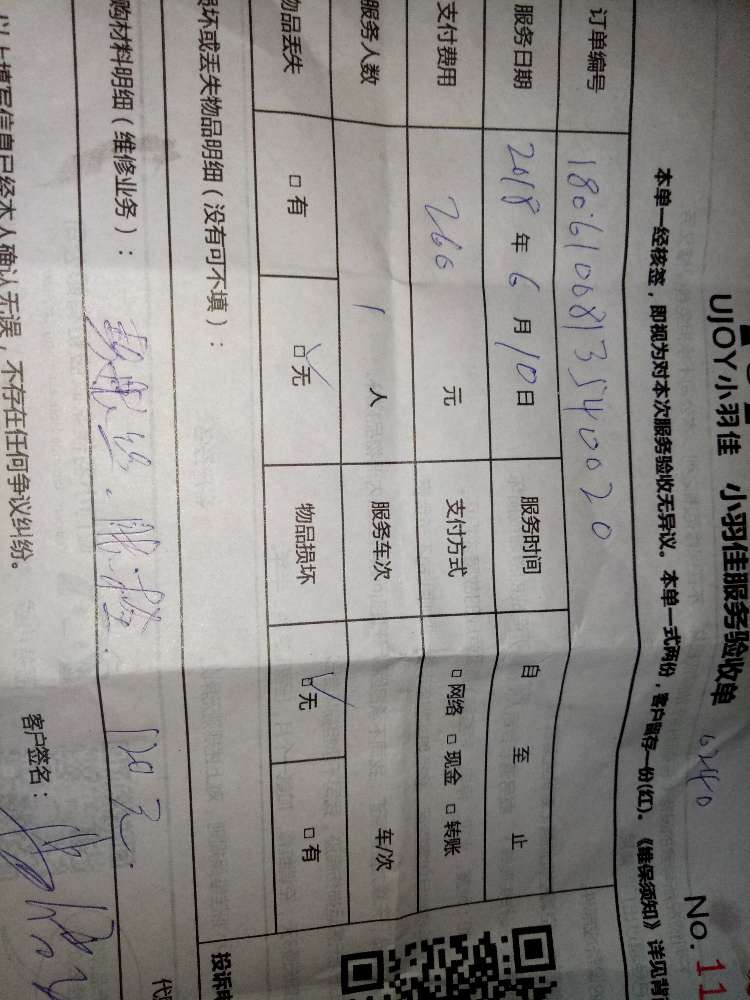 UJOY小羽佳 小羽佳服务验收单
No.11
本单一经核签，即视为对本次服务验收无异议。本单一式两份，客户留存一份(红)。《维保须知》详见背
订单编号 1806100813540020
服务日期 2018年6月10日 服务时间 自 至 止
支付费用 260元 支付方式 □网络 □现金 □转账
服务人数 1人 服务车次 车/次
物品丢失 □有 ☑无 物品损坏 ☑无 □有
损坏或丢失物品明细（没有可不填）：
投诉电
购材料明细（维修业务）： 120元.
以上填写信息已经本人确认无误，不存在任何争议纠纷。
客户签名：